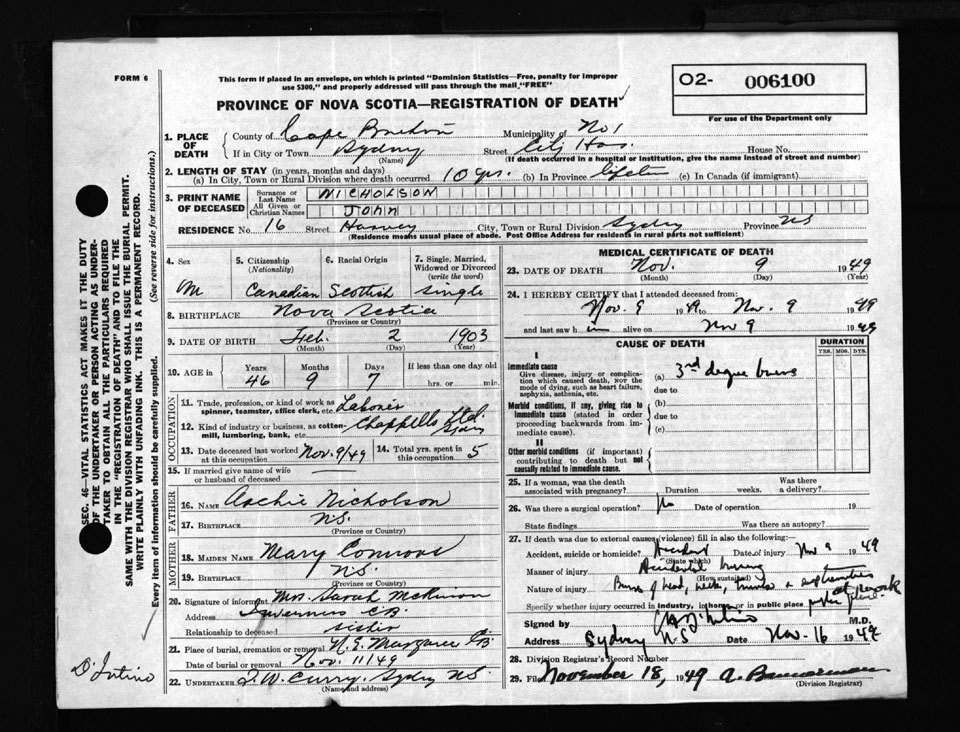 FORM 6
This form if placed in an envelope, on which is printed "Dominion Statistics—Free, penalty for improper
use $300," and properly addressed will pass through the mail, "FREE"
O2- 006100
For use of the Department only
PROVINCE OF NOVA SCOTIA—REGISTRATION OF DEATH
1. PLACE OF DEATH
County of Cape Breton Municipality of No 1
If in City or Town Sydney Street City Hos. House No.
(Name) (If death occurred in a hospital or institution, give the name instead of street and number)
2. LENGTH OF STAY (in years, months and days)
(a) In City, Town or Rural Division where death occurred 10 yrs. (b) In Province lifetime (c) In Canada (if immigrant)
3. PRINT NAME OF DECEASED
Surname or Last Name NICHOLSON
All Given or Christian Names JOHN
RESIDENCE No. 16 Street Harvey City, Town or Rural Division Sydney Province NS
(Residence means usual place of abode. Post Office Address for residents in rural parts not sufficient)
4. Sex 5. Citizenship (Nationality) 6. Racial Origin 7. Single, Married, Widowed or Divorced (write the word)
M Canadian Scottish Single
8. BIRTHPLACE Nova Scotia
(Province or Country)
9. DATE OF BIRTH Feb. 2 1903
(Month) (Day) (Year)
10. AGE in Years Months Days If less than one day old
46 9 7 hrs. or min.
OCCUPATION
11. Trade, profession, or kind of work as spinner, teamster, office clerk, etc. Laborer
12. Kind of industry or business, as cotton-mill, lumbering, bank, etc. Chappells Ltd. Sydney
13. Date deceased last worked at this occupation Nov. 9/49 14. Total yrs. spent in this occupation 5
15. If married give name of wife or husband of deceased —
FATHER
16. NAME Archie Nicholson
17. BIRTHPLACE N.S.
(Province or Country)
MOTHER
18. MAIDEN NAME Mary Connors
19. BIRTHPLACE N.S.
(Province or Country)
20. Signature of informant Mrs. Sarah McKinnon
Address Inverness C.B.
Relationship to deceased sister
21. Place of burial, cremation or removal N.E. Margaree CB
Date of burial or removal Nov. 11/49
22. UNDERTAKER T.W. Curry, Sydney NS
(Name and address)
MEDICAL CERTIFICATE OF DEATH
23. DATE OF DEATH Nov. 9 1949
(Month) (Day) (Year)
24. I HEREBY CERTIFY that I attended deceased from:
Nov. 9 1949 to Nov. 9 1949
and last saw him alive on Nov 9 1949
CAUSE OF DEATH DURATION
YRS. MOS. DYS.
I
Immediate cause
Give disease, injury or complication which caused death, NOT the mode of dying, such as heart failure, asphyxia, asthenia, etc.
(a) 3rd degree burns
due to
Morbid conditions, if any, giving rise to immediate cause (stated in order proceeding backwards from immediate cause).
(b)
due to
(c)
II
Other morbid conditions (if important) contributing to death but not causally related to immediate cause.
25. If a woman, was the death associated with pregnancy? Duration weeks. Was there a delivery?
26. Was there a surgical operation? No Date of operation 19
State findings Was there an autopsy?
27. If death was due to external causes (violence) fill in also the following:
Accident, suicide or homicide? Accident Date of injury Nov 9 1949
(State which)
Manner of injury Accidental burning
(How sustained)
Nature of injury Burns of head, neck, trunk & extremities
Specify whether injury occurred in industry, in home or in public place at work
Signed by M.D.
Address Sydney N.S. Date Nov. 16 1949
28. Division Registrar's Record Number
29. Filed November 18, 1949
(Division Registrar)
SEC. 46—VITAL STATISTICS ACT MAKES IT THE DUTY
OF THE UNDERTAKER OR PERSON ACTING AS UNDER-
TAKER TO OBTAIN ALL THE PARTICULARS REQUIRED
IN THE "REGISTRATION OF DEATH" AND TO FILE THE
SAME WITH THE DIVISION REGISTRAR WHO SHALL ISSUE THE BURIAL PERMIT.
WRITE PLAINLY WITH UNFADING INK. THIS IS A PERMANENT RECORD.
Every item of information should be carefully supplied. (See reverse side for instructions.)
D'Intino